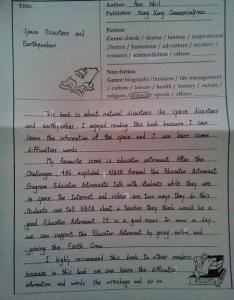 Title:
Space Disasters and
Earthquakes
Author: Ann Weil
Publisher: Hong Kong Commercial press
Fiction:
Genre: classic / drama / fantasy / inspirational
/ horror / humorous / adventure / mystery /
romance / science-fiction / others
Non-fiction
Genre: biography / business / life management
/ culture / leisure / health / history / nature /
religion / science / sports / others
This book is about natural disasters like space disasters
and earthquakes. I enjoyed reading this book because I can
learn the information of the space and I can learn some
difficulties words.
My favourite scene is educator astronaut. After the
Challenger, 1986 exploded, NASA formed the Educator Astronaut
Program. Educator Astronauts talk with students while they are
in space. The Internet and videos are two ways they do this.
Students can tell NASA about a teachers they think would be a
good Educator Astronaut. It is a good news. In now a day,
we can support the Educator Astronaut by going online and
joining the Earth Crew.
I highly recommend this book to other readers
because in this book we can learn the difficult
information and words like wreckage and so on.